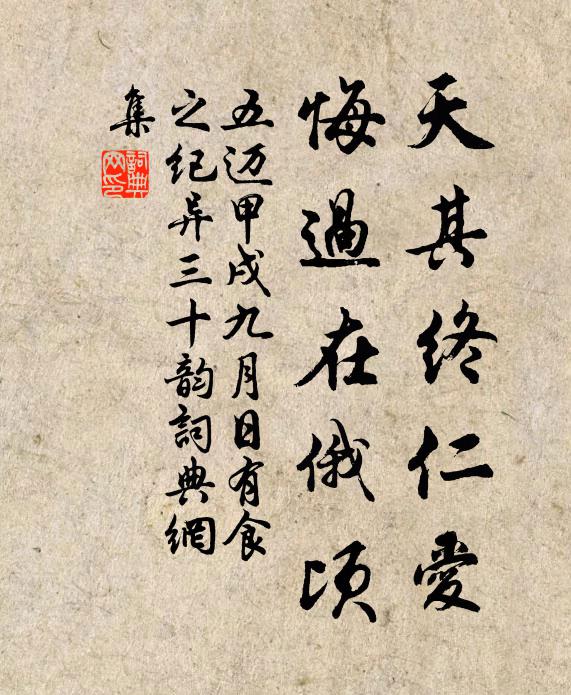 天其終仁愛
悔過在俄頃
五迈甲戌九月日有食
之纪异三十韵詞典網
集
詞典
网印